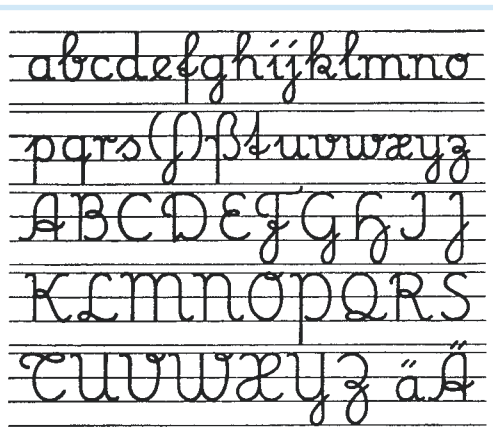 abcdefghijklmno
pqrs(ſ)ßtuvwxyz
ABCDEFGHIJ
KLMNOPQRS
TUVWXYZ äÄ